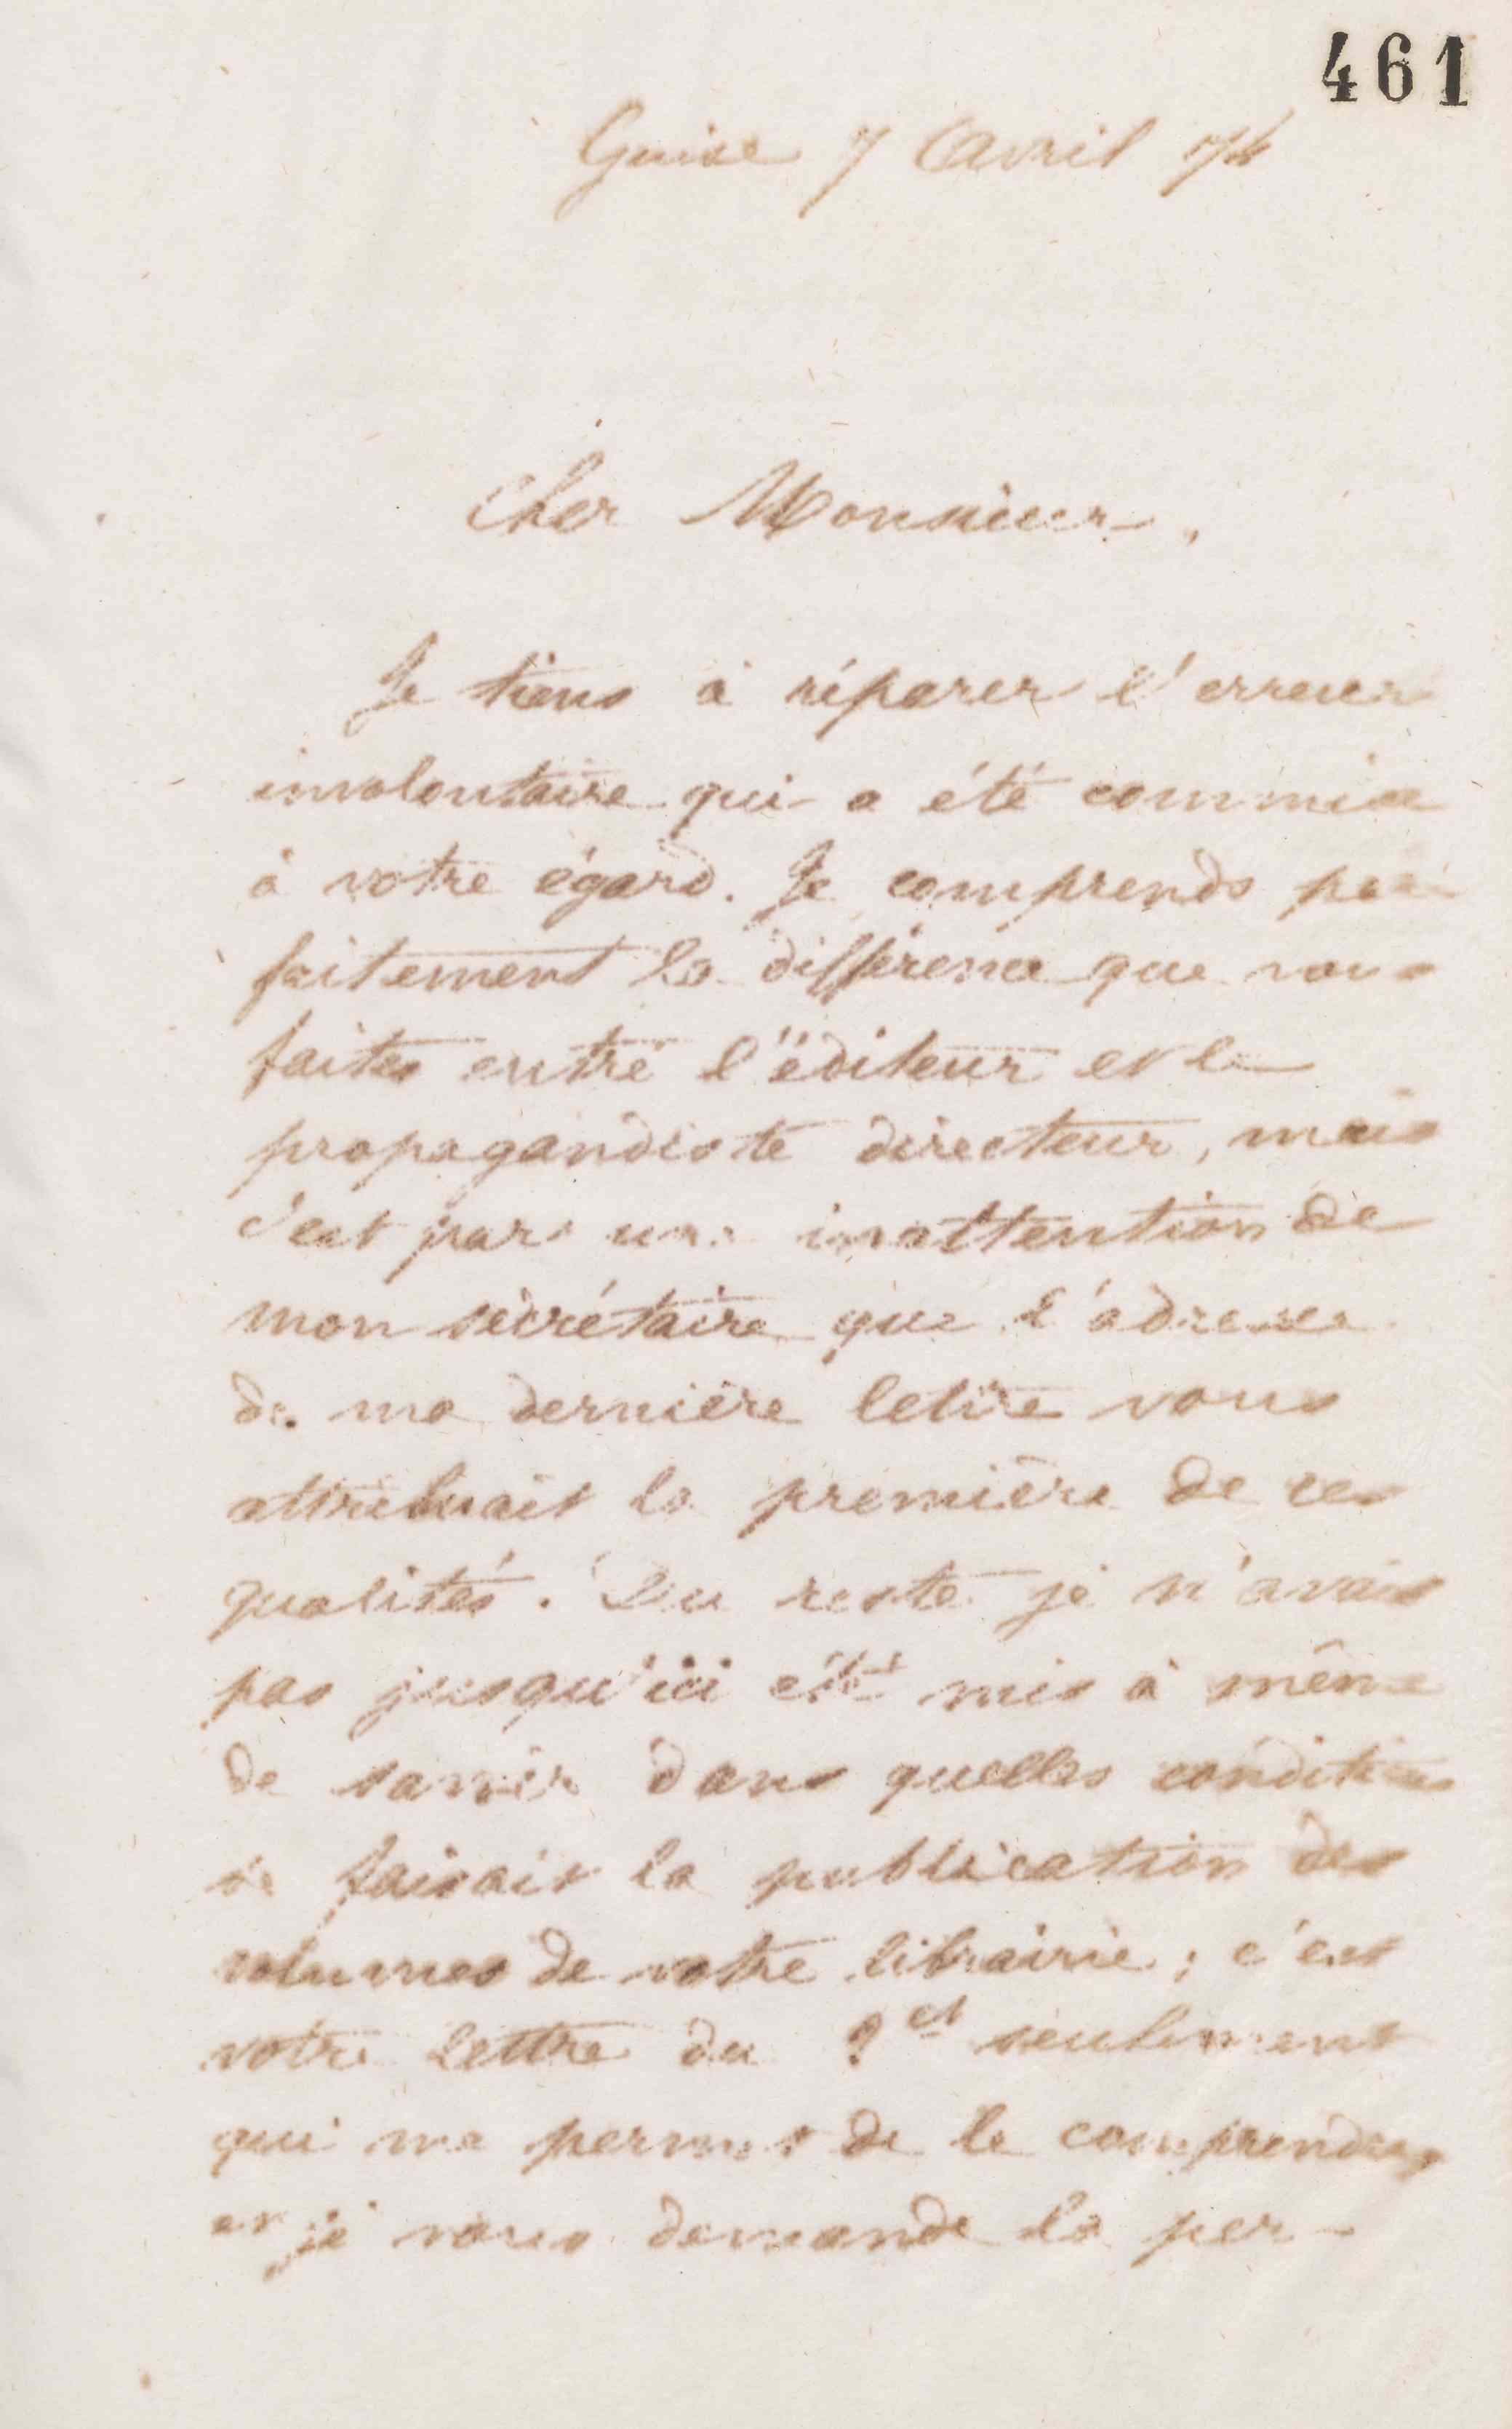 461
Guise 7 Avril 74
Cher Monsieur,
Je tiens à réparer l'erreur
involontaire qui a été commise
à votre égard. Je comprends par
faitement la différence que vous
faites entre l'éditeur et le
propagandiste directeur, mais
c'est par une inattention de
mon secrétaire que l'adresse
de ma dernière lettre vous
attribuait la première de ces
qualités. Du reste je n'avais
pas jusqu'ici été mis à même
de savoir dans quelles conditions
se faisait la publication des
volumes de votre librairie ; c'est
votre lettre du seulement
qui me permet de le comprendre,
et je vous demande la per-